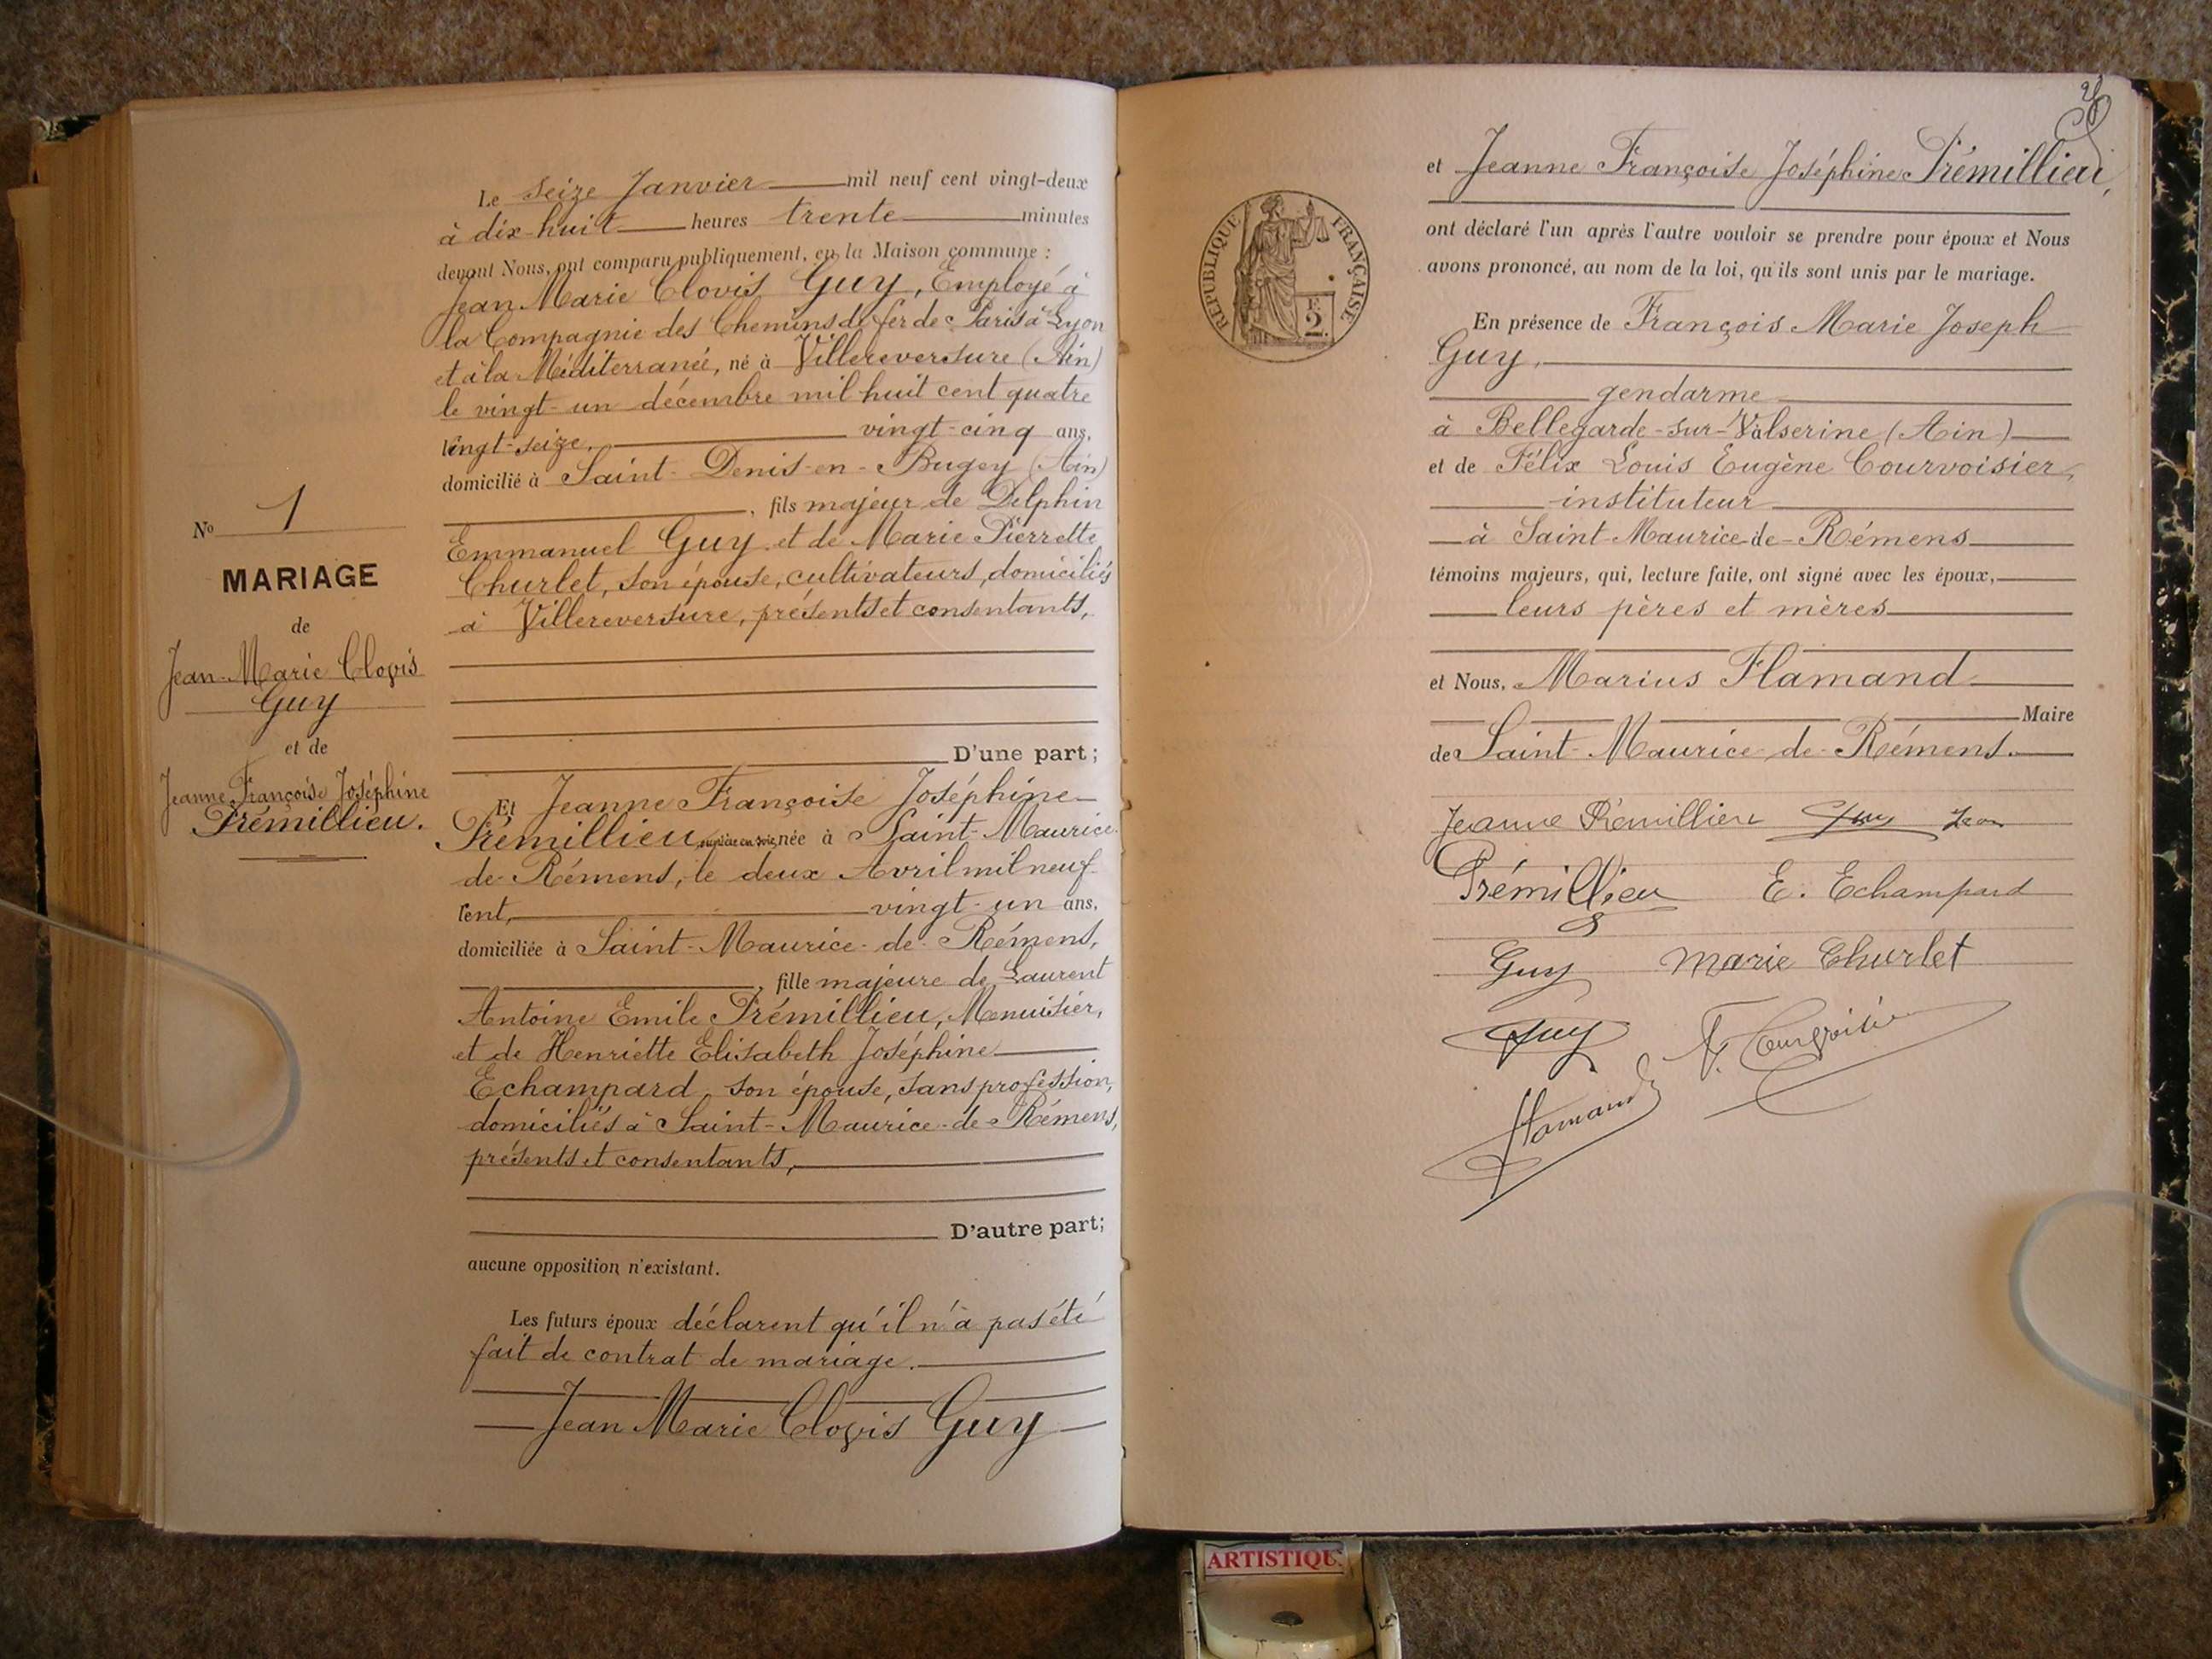 N° 1
MARIAGE
de
Jean-Marie Clovis
Guy
et de
Jeanne Françoise Joséphine
Prémillieu.
Le seize Janvier mil neuf cent vingt-deux
à dix-huit heures trente minutes
devant Nous, ont comparu publiquement, en la Maison commune :
Jean Marie Clovis Guy, Employé à
la Compagnie des Chemins de fer de Paris à Lyon
et à la Méditerranée, né à Villereversure (Ain)
le vingt-un décembre mil huit cent quatre
vingt-seize, vingt-cinq ans,
domicilié à Saint-Denis-en-Bugey (Ain)
, fils majeur de Delphin
Emmanuel Guy et de Marie Pierrette
Churlet, son épouse, cultivateurs, domiciliés
à Villereversure, présents et consentants,
D'une part ;
Et Jeanne Françoise Joséphine
Prémillieu, née à Saint-Maurice-
de-Rémens, le deux Avril mil neuf
cent, vingt-un ans,
domiciliée à Saint-Maurice-de-Rémens,
, fille majeure de Laurent
Antoine Emile Prémillieu, Menuisier,
et de Henriette Elisabeth Joséphine
Echampard, son épouse, sans profession,
domiciliés à Saint-Maurice-de-Rémens,
présents et consentants,
D'autre part;
aucune opposition n'existant.
Les futurs époux déclarent qu'il n'a pas été
fait de contrat de mariage.
Jean Marie Clovis Guy
RÉPUBLIQUE FRANÇAISE
2
et Jeanne Françoise Joséphine Prémillieu,
ont déclaré l'un après l'autre vouloir se prendre pour époux et Nous
avons prononcé, au nom de la loi, qu'ils sont unis par le mariage.
En présence de François Marie Joseph
Guy,
gendarme
à Bellegarde-sur-Valserine (Ain)
et de Félix Louis Eugène Courvoisier,
instituteur
à Saint-Maurice-de-Rémens
témoins majeurs, qui, lecture faite, ont signé avec les époux,
leurs pères et mères
et Nous, Marius Flamand
Maire
de Saint-Maurice-de-Rémens.
Jeanne Prémillieu Guy Jean
Prémillieu E. Echampard
Guy Marie Churlet
Guy F. Courvoisier
Flamand
ARTISTIQUE